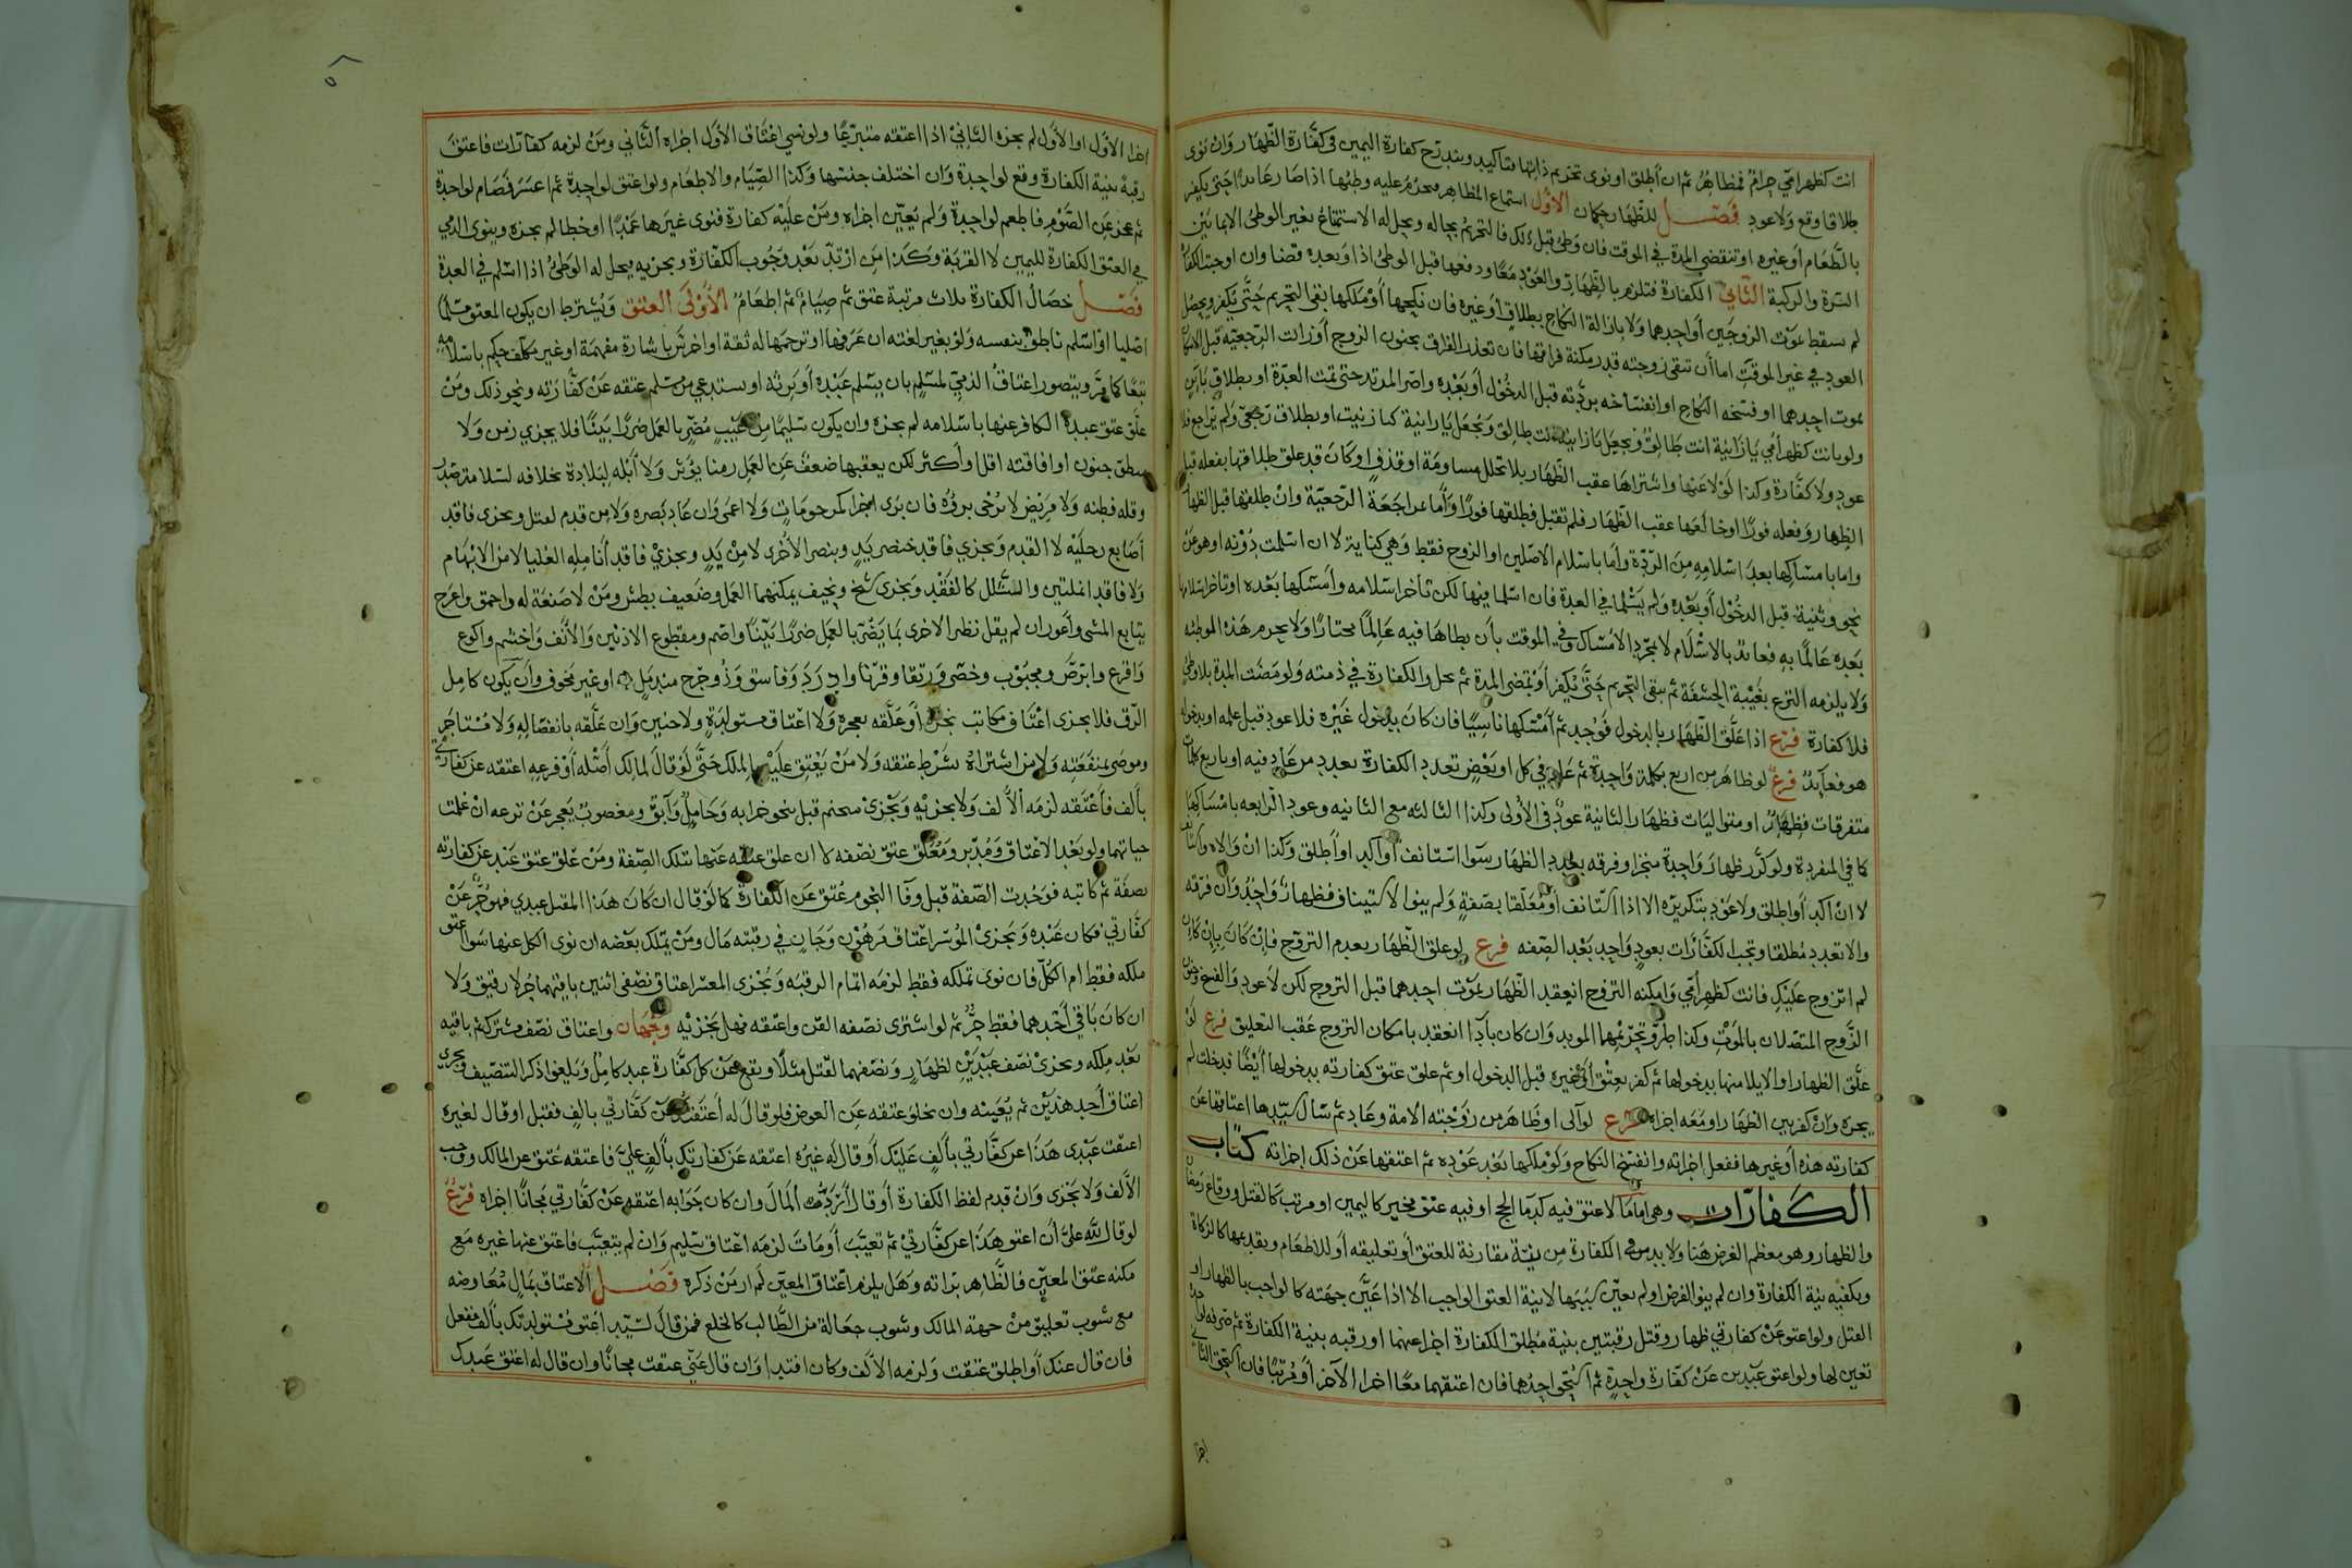 انت كظهر امي حرام فمظاهر ثم ان أطلق او نوى تحريم ذاتها فتأكيد ويندرج كفارة اليمين في كفارة الظهار وان نوى
طلاقا وقع ولا عود فصل للظهار حكمان الأول استماع المظاهر فيحرم عليه وطئها اذا صار عائدا حتى يكفر
بالطعام أو غيره او تنقضي المدة في الموقت فان وطئ قبل ذلك فالتحريم بحاله ويحل له الاستمتاع بغير الوطئ الا بما بين
السرة والركبة الثاني الكفارة فتلزم بالظهار والعود معا ودفعها قبل الوطئ اذا وبعده قضا وان اوجبنا الكفارة
لم تسقط بموت الزوجين أو احدهما ولا بازالة النكاح بطلاق أو غيره فان نكحها أو ملكها بقي التحريم حتى يكفر ويحصل
العود في غير الموقت اما أن تبقى زوجته قدر مكنة فراقها فان تعذر الفراق بجنون الزوج أو زالت الرجعية قبل
بموت احدهما او فسخه النكاح او انفساخه بردته قبل الدخول أو بعده واصر المرتد حتى تمت العدة او بطلاق باين
ولو بانت كظهر أمي يا زانية انت طالق ويجعل يا زانية انت طالق ويجعل يا زانية كما زنيت او بطلاق رجعي ولم يراجع فلا
عود ولا كفارة وكذا لو لاعنها واشتراها عقب الظهار بلا تخلل مساومة او قذف او كان قد علق طلاقها بفعله قبل
الظهار وفعله فورا او خالعها عقب الظهار فلم تقبل فطلقها فورا واما بمراجعة الرجعية وان طلقها قبل الظهار
واما بامساكها بعد اسلامه من الردة واما باسلام الاصليين او الزوج فقط وهي كتابية لا ان اسلمت دونه او هو عن
نحو وثنية قبل الدخول أو بعده ولم يسلما في العدة فان اسلما فيها لكن تأخر اسلامه وأمسكها بعده او تأخر اسلامها
بعده عالما به فعائد بالاسلام لا بمجرد الامساك وفي الموقت بأن يطاها فيه عالما مختارا ولا يحرم هذه الموطئه
ولا يلزمه النزع بغيبة الحشفة ثم يبقى التحريم حتى يكفر أو تمضي المدة ثم يحل والكفارة في ذمته ولو مضت المدة بلا وطئ
فلا كفارة فرع اذا علق الظهار بالدخول فوجد ثم أمسكها ناسيا فان كان بدخول غيره فلا عود قبل علمه او بدخوله
هو فعائد فرع لو ظاهر من اربع بكلمة واحدة ثم عاد في كل او بعض تعدد الكفارة بعدد من عاد فيه او باربع كلمات
متفرقات فظهار او متواليات فظهار الثانية عود في الأولى وكذا الثالثه مع الثانيه وعود الرابعه بامساكها
كما في المفردة ولو كرر ظهار واحدة منجزا وفرقه تعدد الظهار سوا استانف أو أكد او أطلق وكذا ان والاه واستانف
لا ان اكد أو اطلق ولا عود بتكريره الا اذا استانف أو معلقا بصفة ولم ينو الاستيناف فظهار واحد وان فرقه
والا تعدد مطلقا وتجب الكفارات بعود واحد بعد الصفه فرع لو علق الظهار بعدم التزوج فان كان بان كان
لم اتزوج عليك فانت كظهر أمي وامكنه التزوج انعقد الظهار بموت احدهما قبل التزوج لكن لا عود والفسخ وجنون
الزوج المتصلان بالموت وكذا طرو تحريمها الموبد وان كان باذا انعقد بامكان التزوج عقب التعليق فرع لو
علق الظهار او الايلا منها بدخولها ثم كفر بعتق أو غيره قبل الدخول او ثم علق عتق كفارته بدخولها أيضا فدخلت لم
يجزه وان كفر بين الظهار او معه اجزاه فرع لو آلى او ظاهر من زوجته الامة وعاد ثم سال سيدها اعتاقها عن
كفارته هذه أو غيرها ففعل اجزاته وانفسخ النكاح ولو ملكها بعد عوده ثم اعتقها عن ذلك اجزاته كتاب
الكفارات وهي اما ما لا عتق فيه كدما الحج او فيه عتق مخير كاليمين او مرتب كالقتل ووقاع رمضان
والظهار وهو معظم الغرض هنا ولا بد في الكفارة من نية مقارنة للعتق أو تعليقه أو للاطعام وتقديمها كالزكاة
ويكفيه نية الكفارة وان لم ينو الفرض او لم يعين سببها لا نية العتق الواجب الا اذا عين جهته كالواجب بالظهار او
القتل ولو اعتق عن كفارتي ظهار وقتل رقبتين بنية مطلق الكفارة اجزا عنهما او رقبه بنية الكفارة ثم صرفه لواحدة
تعين لها ولو اعتق عبدين عن كفارة واحدة ثم استحق احدهما فان اعتقهما معا اجزا الآخر أو مرتبا فان استحق الثاني
اجزا
اجزا الأول او الأول لم يجزه الثاني اذا اعتقه متبرعا ولو نسي اعتاق الأول اجزاه الثاني ومن لزمه كفارات فاعتق
رقبة بنية الكفارة وقع لواحدة وان اختلف جنسها وكذا الصيام والاطعام ولو اعتق لواحدة ثم اعسر فصام لواحدة
ثم عجز عن الصوم فاطعم لواحدة ولم يعين اجزاه ومن عليه كفارة فنوى غيرها عمدا او خطا لم يجزه وينوى الذمي
في العتق الكفارة للتمييز لا القربة وكذا من ارتد بعد وجوب الكفارة ويجزيه ويحل له الوطئ اذا اسلم في العدة
فصل خصال الكفارة ثلاث مرتبة عتق ثم صيام ثم اطعام الأولى العتق ويشترط ان يكون المعتق مسلما
اصليا او اسلم ناطق بنفسه ولو بغير لغته ان عرفها او ترجمها له ثقة او اخرس باشارة مفهمة او غير مكلف حكم باسلامه
تبعا كما مر ويتصور اعتاق الذمي لمسلم بان يسلم عبده أو يرثه او يستدعي من مسلم عتقه عن كفارته ونحو ذلك ومن
علق عتق عبده الكافر عنها باسلامه لم يجزه وان يكون سليما من عيب مضر بالعمل ضررا بينا فلا يجزي زمن ولا
مطبق جنون او افاقته اقل أو أكثر لكن يعقبها ضعف عن العمل زمنا يؤثر ولا أبله لبلادة بخلافه لسلامة صدر
وقله فطنه ولا مريض لا يرجى بروه فان برى اجزا كمرجو مات ولا اعمى وان عاد بصره ولا من قدم لقتل ويجزى فاقد
أصابع رجليه لا القدم ويجزي فاقد خنصر يد وبنصر الأخرى لا من يد ويجزي فاقد أنامله العليا لا من الابهام
ولا فاقد انملتين والشلل كالفقد ويجزى شيخ ونحيف يمكنهما العمل وضعيف بطش ومن لا صنعة له واحمق واعرج
يتابع المشى وأعور ان لم يقل نظر الاخرى بما يضر بالعمل ضررا بينا واصم ومقطوع الاذنين والأنف واخشم واكوع
واقرع وابرص ومجبوب وخصى ورتقا وقرنا وادرد وفاسق وذو جرح مندمل او غير مخوف وأن يكون كامل
الرق فلا يجزى اعتاق مكاتب نجزه أو علقه بعجزه ولا اعتاق مستولدة ولا جنين وان علقه بانفصاله ولا مستاجر
وموصى بمنفعته ولا من اشتراه بشرط عتقه ولا من يعتق عليه بالملك حتى لو قال لمالك أصله أو فرعه اعتقه عن كفارتي
بألف فأعتقه لزمه الألف ولا يجزيه ويجزى متحتم قبل بنحو حرابه وحامل وآبق ومغصوب يعجز عن نزعه ان علمت
حياتهما ولو بعد الاعتاق ومدبر ومعلق عتق نصفه لا ان علق عتقه عنها بتلك الصفة ومن علق عتق عبد عن كفارته
بصفة ثم كاتبه فوجدت الصفة قبل وفا النجوم عتق عن الكفارة كما لو قال ان كان هذا المقبل عبدي فهو حر عن
كفارتي فكان عبده ويجزى الموسر اعتاق مرهون وجان في رقبته مال ومن يتملك بعضه ان نوى الكل عنها سوا عتق
ملكه فقط ام الكل فان نوى تملكه فقط لزمه اتمام الرقبه ويجزى المعسر اعتاق نصفي اثنين باقيهما حر لا رقيق ولا
ان كان باقي أحدهما فقط حر ثم لو اشترى نصفه القن واعتقه فهل يجزيه وجهان واعتاق نصف مشترك ثم باقيه
بعد ملكه ويجزى نصف عبدين لظهار ونصفهما لقتل مثلا ويقع عن كل كفارة عبد كامل ويلغوا ذكر التنصيف ويجزى
اعتاق أحد هذين ثم يعينه وان يخلو عتقه عن العوض فلو قال له أعتقتك عن كفارتي بالف فقبل او قال لغيره
اعتقت عبدى هذا عن كفارتي بألف عليك أو قال له غيره اعتقه عن كفارتك بألف علي فاعتقه عتق عن المالك ووجب
الألف ولا يجزى وان قدم لفظ الكفارة أو قال أرد المال وان كان جوابه اعتقه عن كفارتي مجانا اجزاه فرع
لو قال لله علي أن اعتق هذا عن كفارتي ثم تعيب أو مات لزمه اعتاق سليم وان لم يتعيب فاعتق عنها غيره مع
مكنه عتق المعين فالظاهر براته وهل يلزم اعتاق المعين لم ار من ذكره فصل الاعتاق بمال معاوضه
مع شوب تعليق من جهة المالك وشوب جعالة من الطالب كالخلع فمن قال لسيد اعتق مستولدتك بألف ففعل
فان قال عنك أو اطلق عتقت ولزمه الألف وكان افتدا وان قال عني عتقت مجانا وان قال له اعتق عبدك